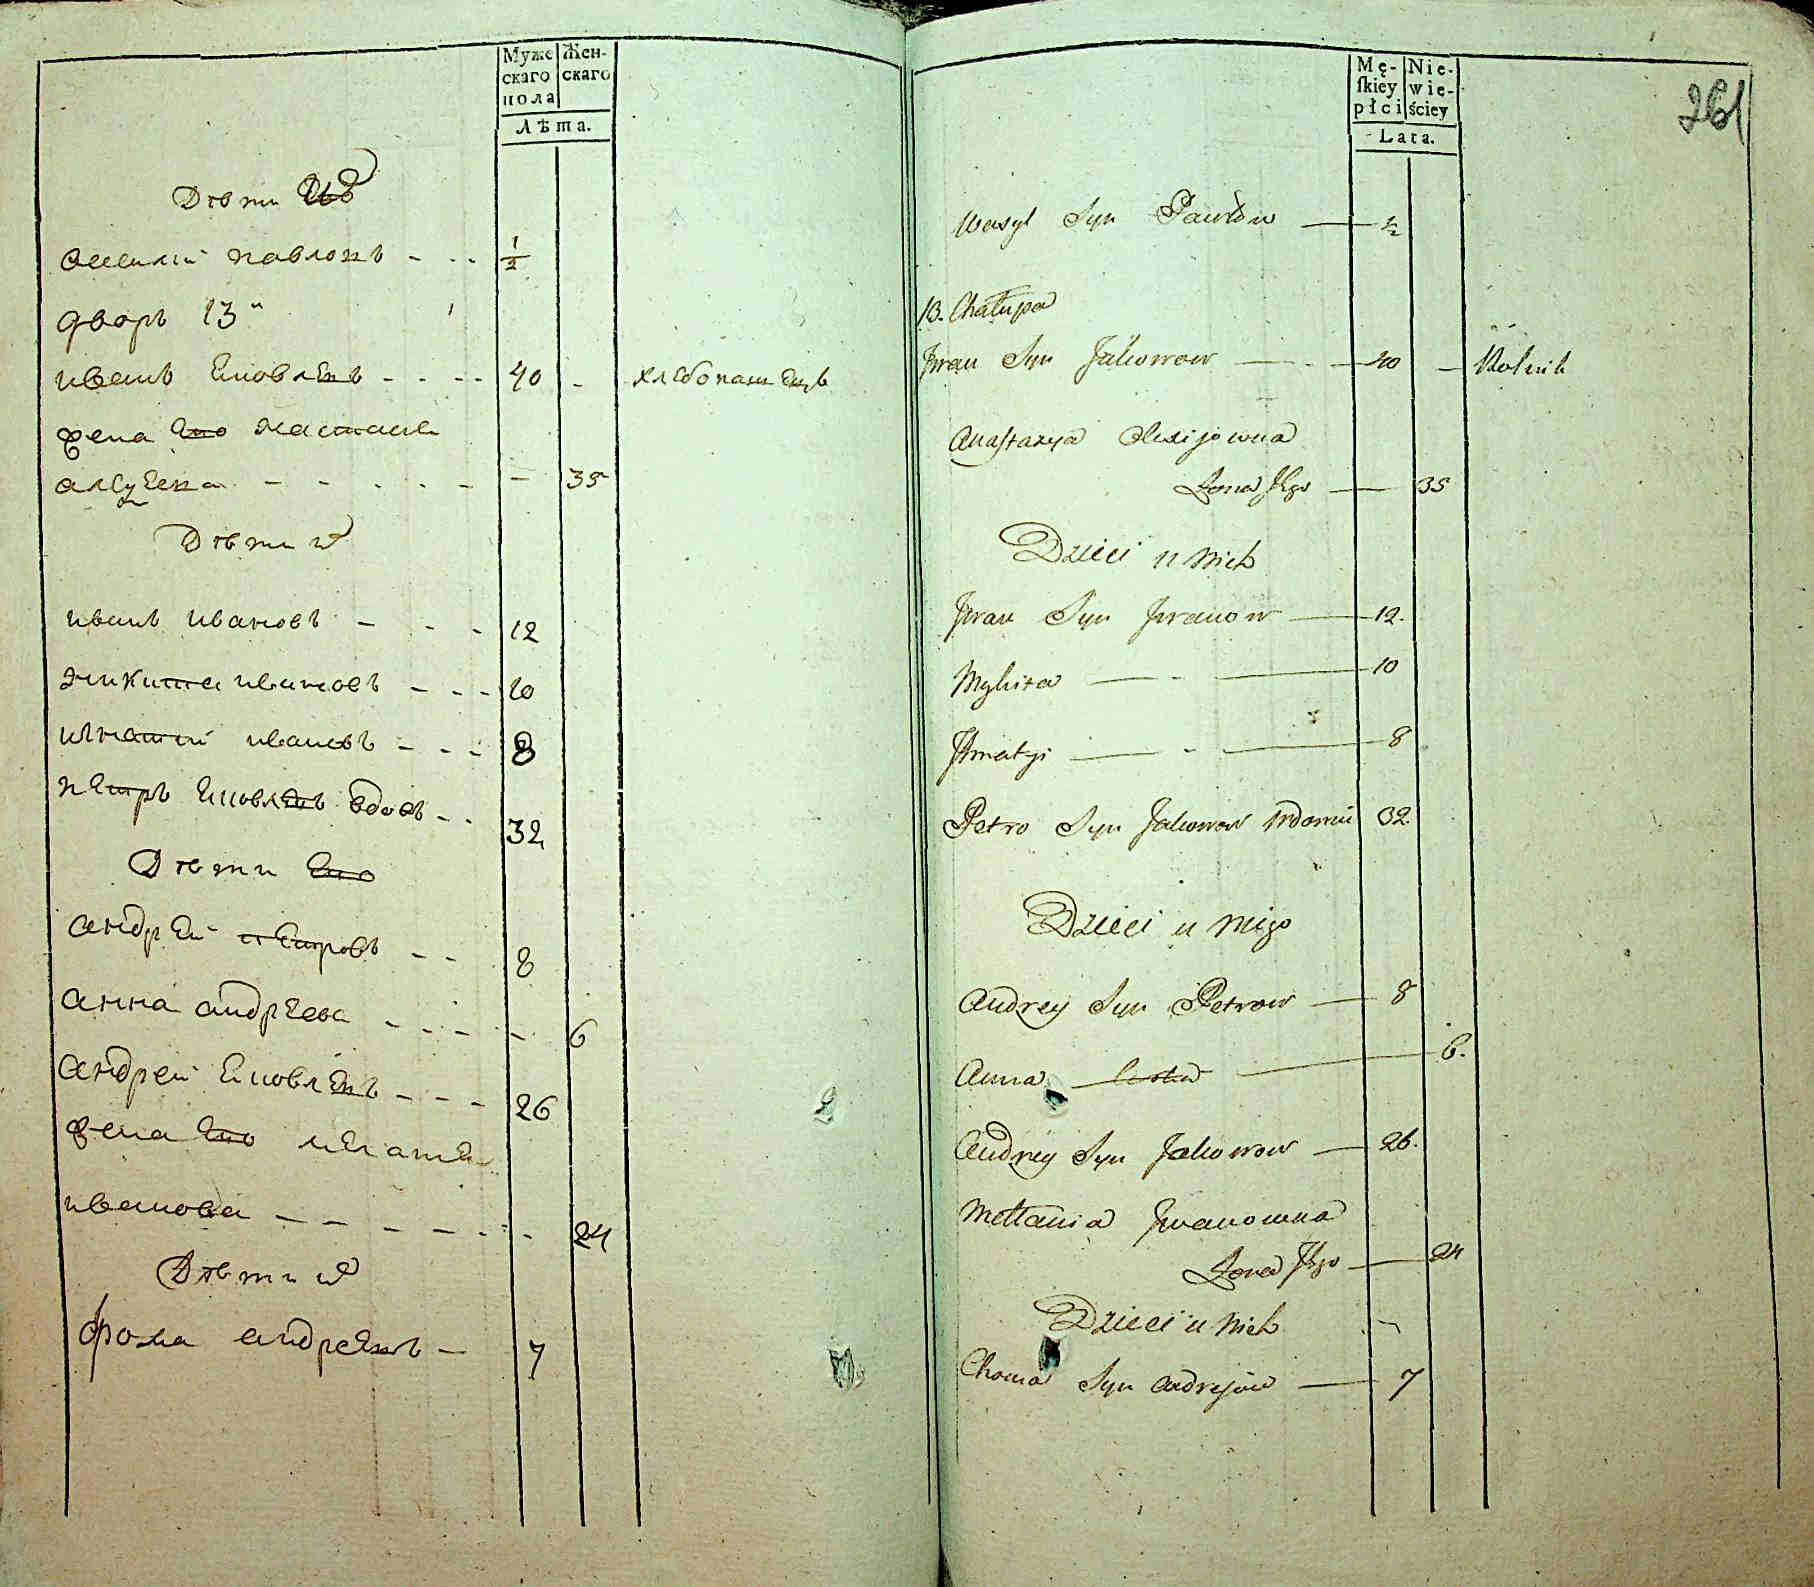 Муже Жен-
скаго скаго
пола
Лѣта.
Дѣти ихъ
Василий Павловъ - - - 1/2
дворъ 13й
иванъ Яковлевъ - - - - 40 - хлебопашецъ
жена его Настасия
алеѯеева - - - - - - 35
Дѣти их
иванъ ивановъ - - - 12
никита ивановъ - - - 10
игнатий ивановъ - - - 8
петръ Яковлевъ вдовъ - - 32
Дѣти его
андрей петровъ - - 8
анна андреева - - - - - 6
андрей Яковлевъ - - - 26
жена его мелания
иванова - - - - - - - 24
Дѣти их
фома андреевъ - 7
Mę- Nie-
ſkiey wie-
płci ściey
Lata.
261
Wasyl Syn Pawłow — ½
13. Chałupa
Jwan Syn Jakowow — 40 — Rolnik
Anastazya Olexijowna
Żona Jego — 35
Dzieci u Nich
Jwan Syn Jwanow — 12.
Mykita — - — 10
Jhnatyi — - — 8
Petro Syn Jakowow Wdowiec 32.
Dzieci u niego
Andrey Syn Petrow — 8
Anna Corka — 6.
Andrey Syn Jakowow — 26.
Mełłania Jwanowna
Żona Jego — 24
Dzieci u Nich
Choma Syn Andrejów — 7